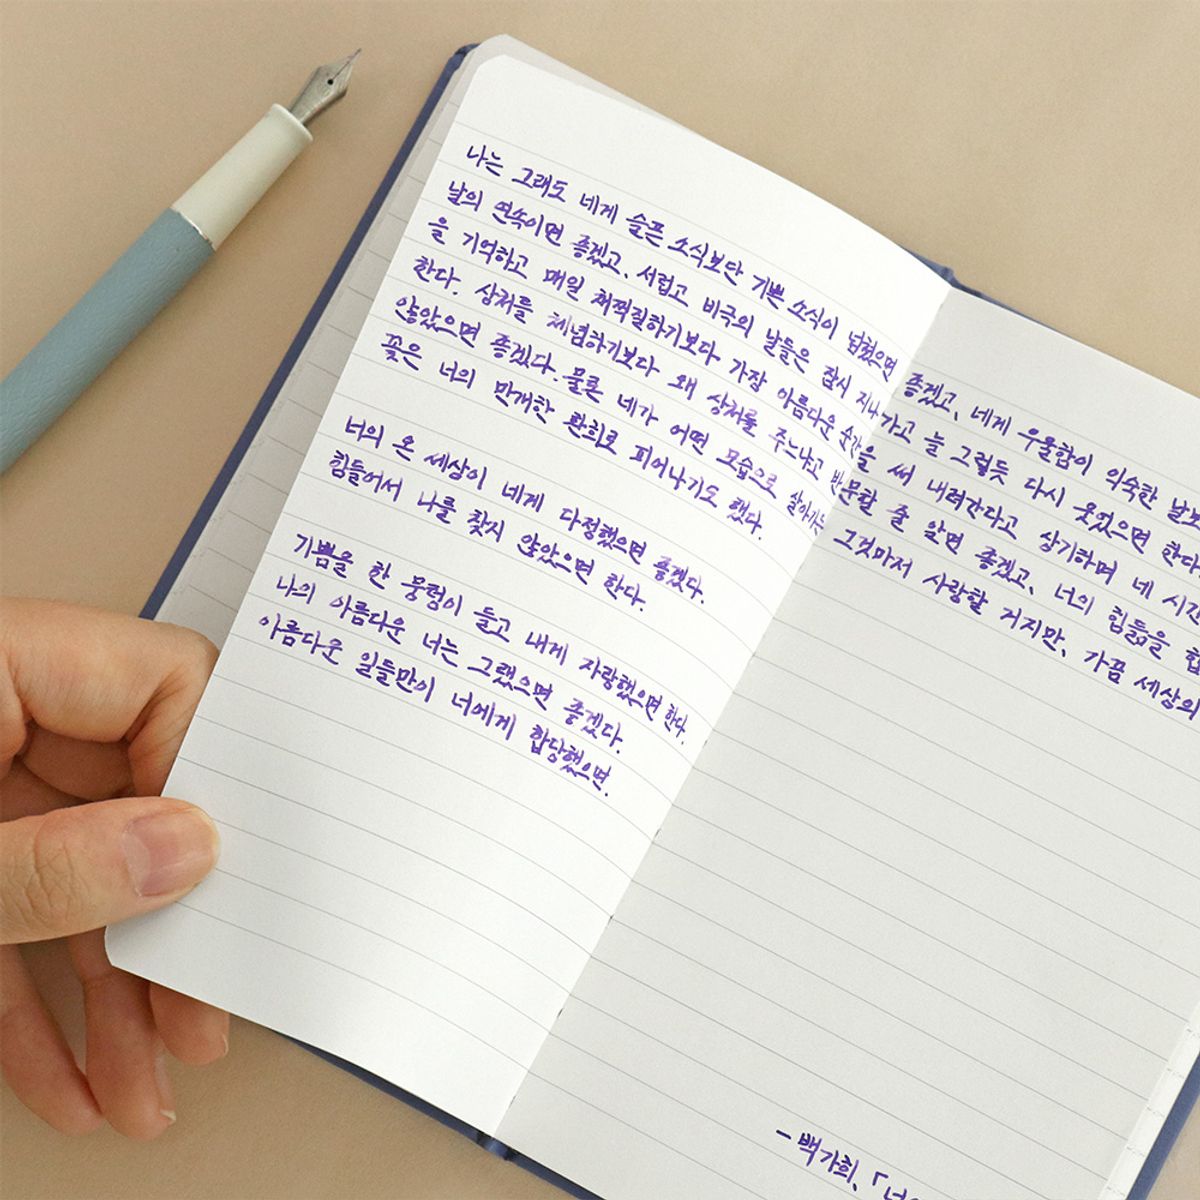 나는 그래도 네게 슬픈 소식보단 기쁜 소식이 넘쳤으면 좋겠고, 네게 우울함이 익숙한
날의 연속이면 좋겠고, 서럽고 비극의 날들은 잠시 지나가고 늘 그렇듯 다시 웃었으면 한다
을 기억하고 매일 채찍질하기보다 가장 아름다운 순간을 써 내려간다고 상기하며 네 시간
한다. 상처를 체념하기보다 왜 상처를 주느냐고 반문할 줄 알면 좋겠고, 너의 힘듦을
않았으면 좋겠다. 물론 네가 어떤 모습으로 살아가든 그것마저 사랑할 거지만, 가끔 세상의
꽃은 너의 만개한 환희로 피어나기도 했다.
너의 온 세상이 네게 다정했으면 좋겠다.
힘들어서 나를 찾지 않았으면 한다.
기쁨을 한 뭉텅이 들고 내게 자랑했으면 한다.
나의 아름다운 너는 그랬으면 좋겠다.
아름다운 일들만이 너에게 합당했으면.
- 백가희, 「